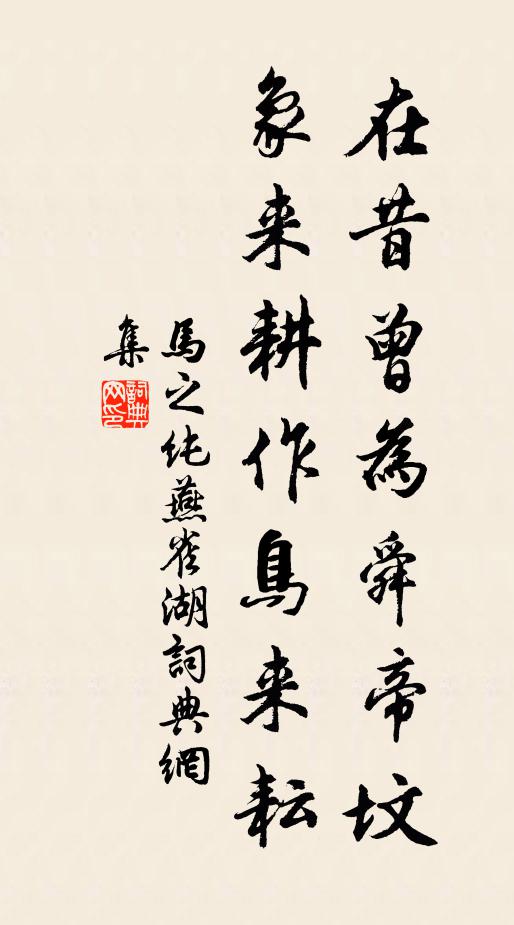 在昔曾為舜帝坟
象来耕作鳥来耘
馬之纯燕雀湖詞典網
集
詞典
网印